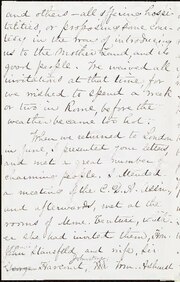 and others - all offering hospi-
talities, or proposing some
in the way of introducing
us to the Motherland, and its
good people. We waived all
invitations at that time, for
we wished to spend a week
or two in Rome, before the
weather became too hot.
When we returned to London
in June, I presented your letters
and met a great number of
charming people. I attended
a meeting of the C.D.A.
and afterwards, met at the
rooms of Mme. Venturi, with
and invited them, Hon.
Stansfeld, and wife, Sir
George Harcourt, Mr. Wm. Ashurst